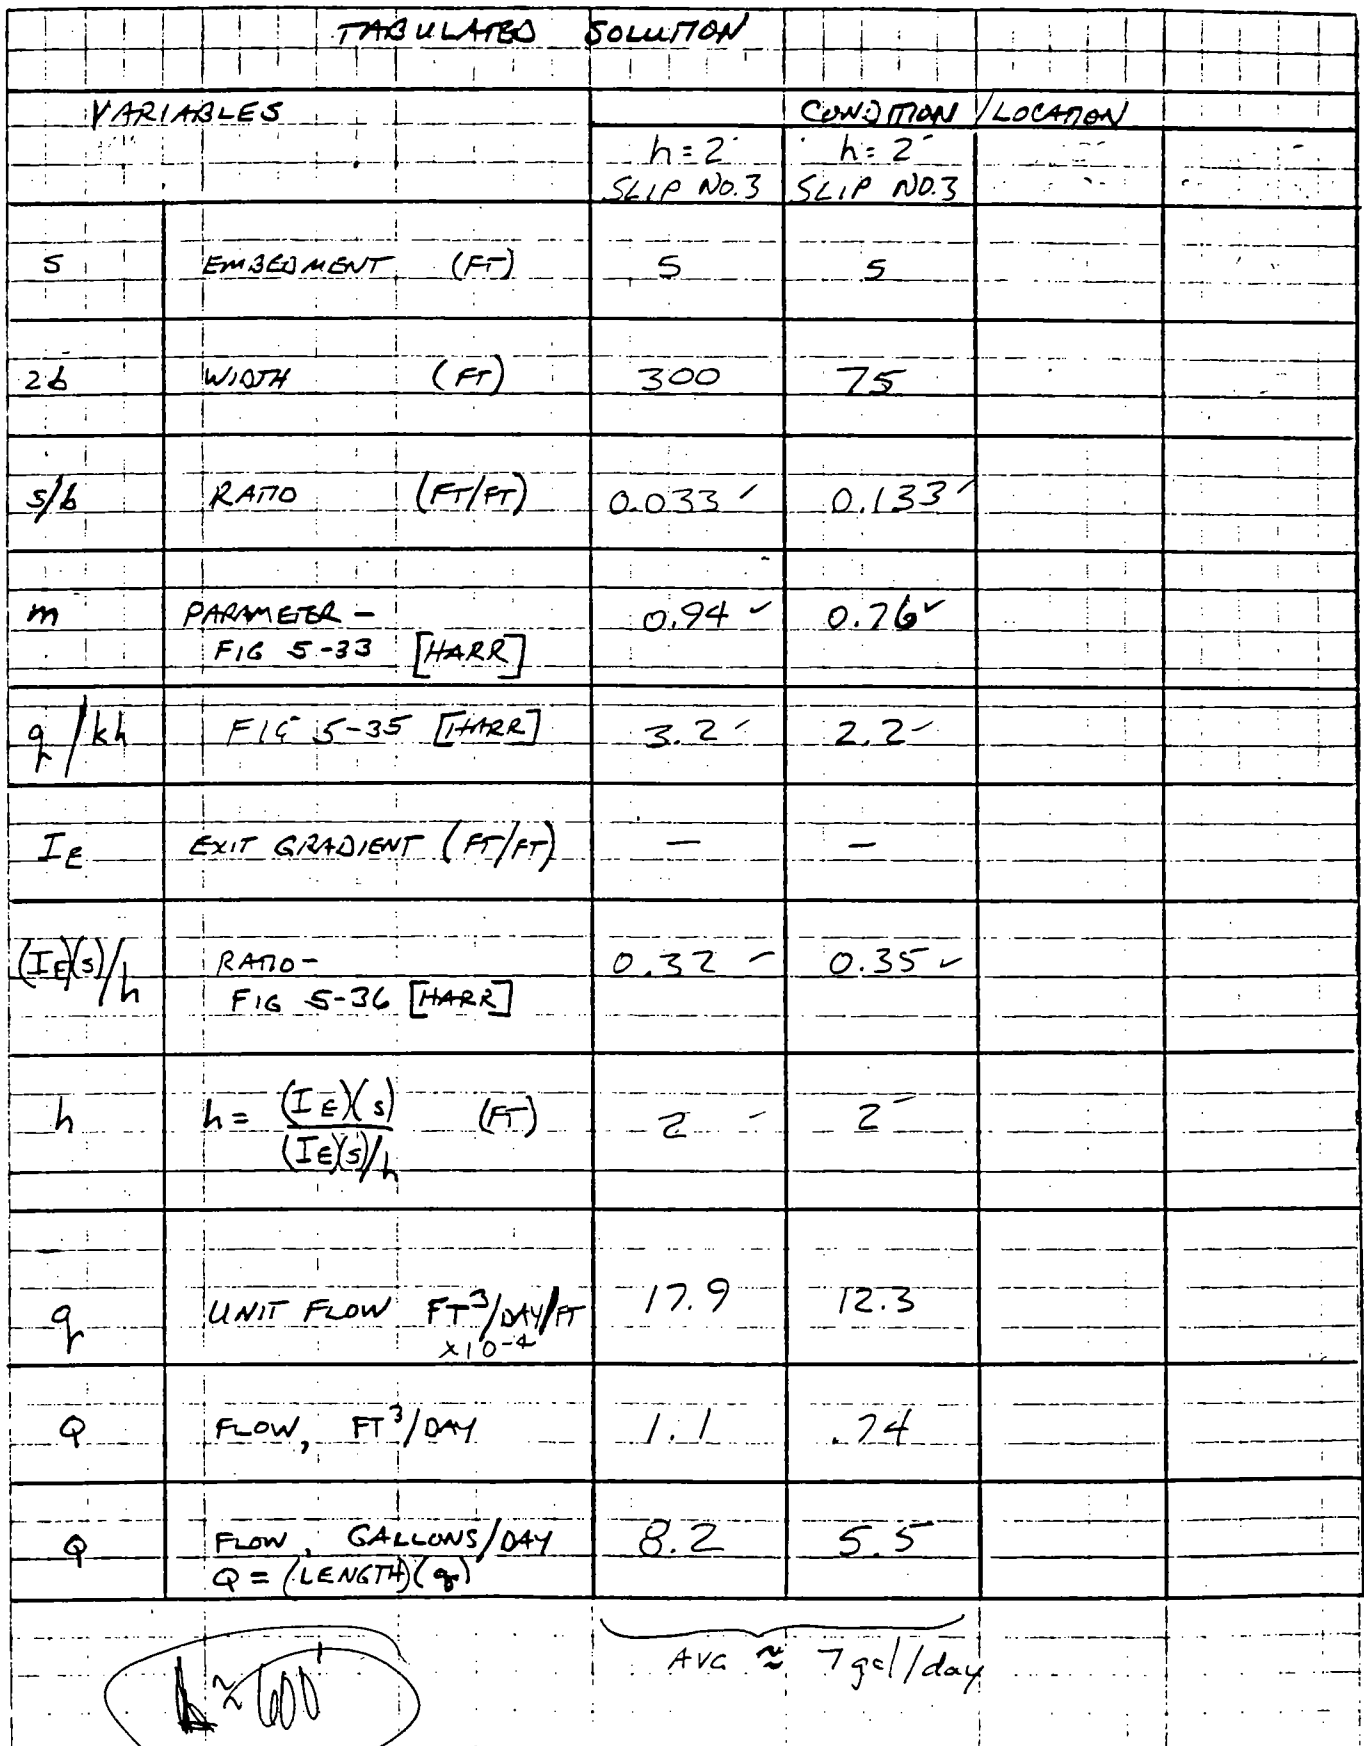 TABULATED SOLUTION
VARIABLES CONDITION / LOCATION
h = 2' h = 2'
SLIP NO. 3 SLIP NO. 3
s EMBEDMENT (FT) 5 5
2b WIDTH (FT) 300 75
s/b RATIO (FT/FT) 0.033 ✓ 0.133 ✓
m PARAMETER - 0.94 ✓ 0.76 ✓
FIG 5-33 [HARR]
q/kh FIG 5-35 [HARR] 3.2 ✓ 2.2 ✓
IE EXIT GRADIENT (FT/FT) — —
(IE)(s)/h RATIO - 0.32 ✓ 0.35 ✓
FIG 5-36 [HARR]
h h = (IE)(s) / (IE)(s)/h (FT) 2 2
q UNIT FLOW FT³/DAY/FT 17.9 12.3
x10-4
Q FLOW, FT³/DAY 1.1 .74
Q FLOW, GALLONS/DAY 8.2 5.5
Q = (LENGTH)(q)
AVG ≈ 7 gal/day
≈ 600'